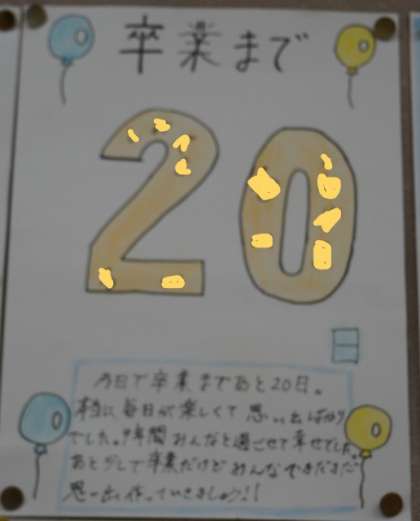 卒業まで
20
日
今日で卒業まであと20日。
本当に毎日が楽しくて思い出ばかり
でした。9年間みんなと過ごせて幸せでした。
あと少しで卒業だけどみんなでまだまだ
思い出を作っていきましょう!!